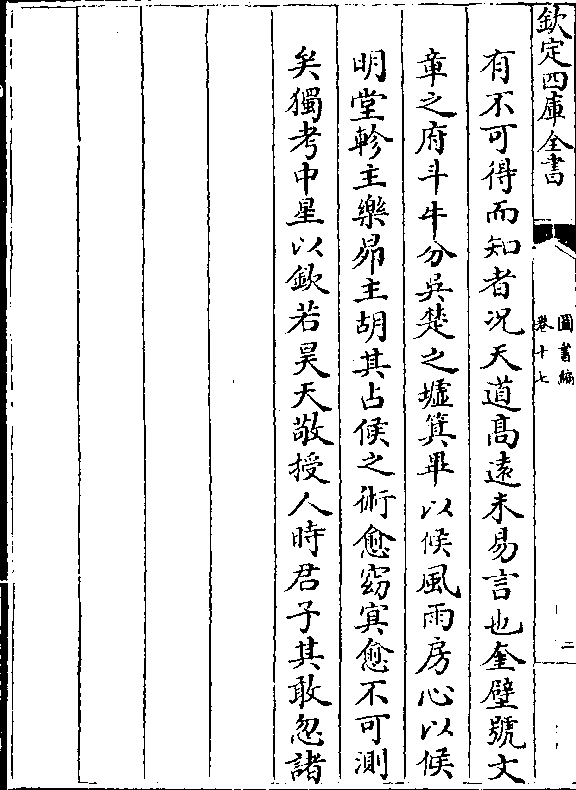 欽定四庫全書
圖書編
卷十七
二
有不可得而知者况天道髙遠未易言也奎壁號文
章之府斗牛分吳楚之墟箕畢以候風雨房心以候
明堂軫主樂昴主胡其占候之術愈窈㝠愈不可測
矣獨考中星以欽若昊天敬授人時君子其敢忽諸